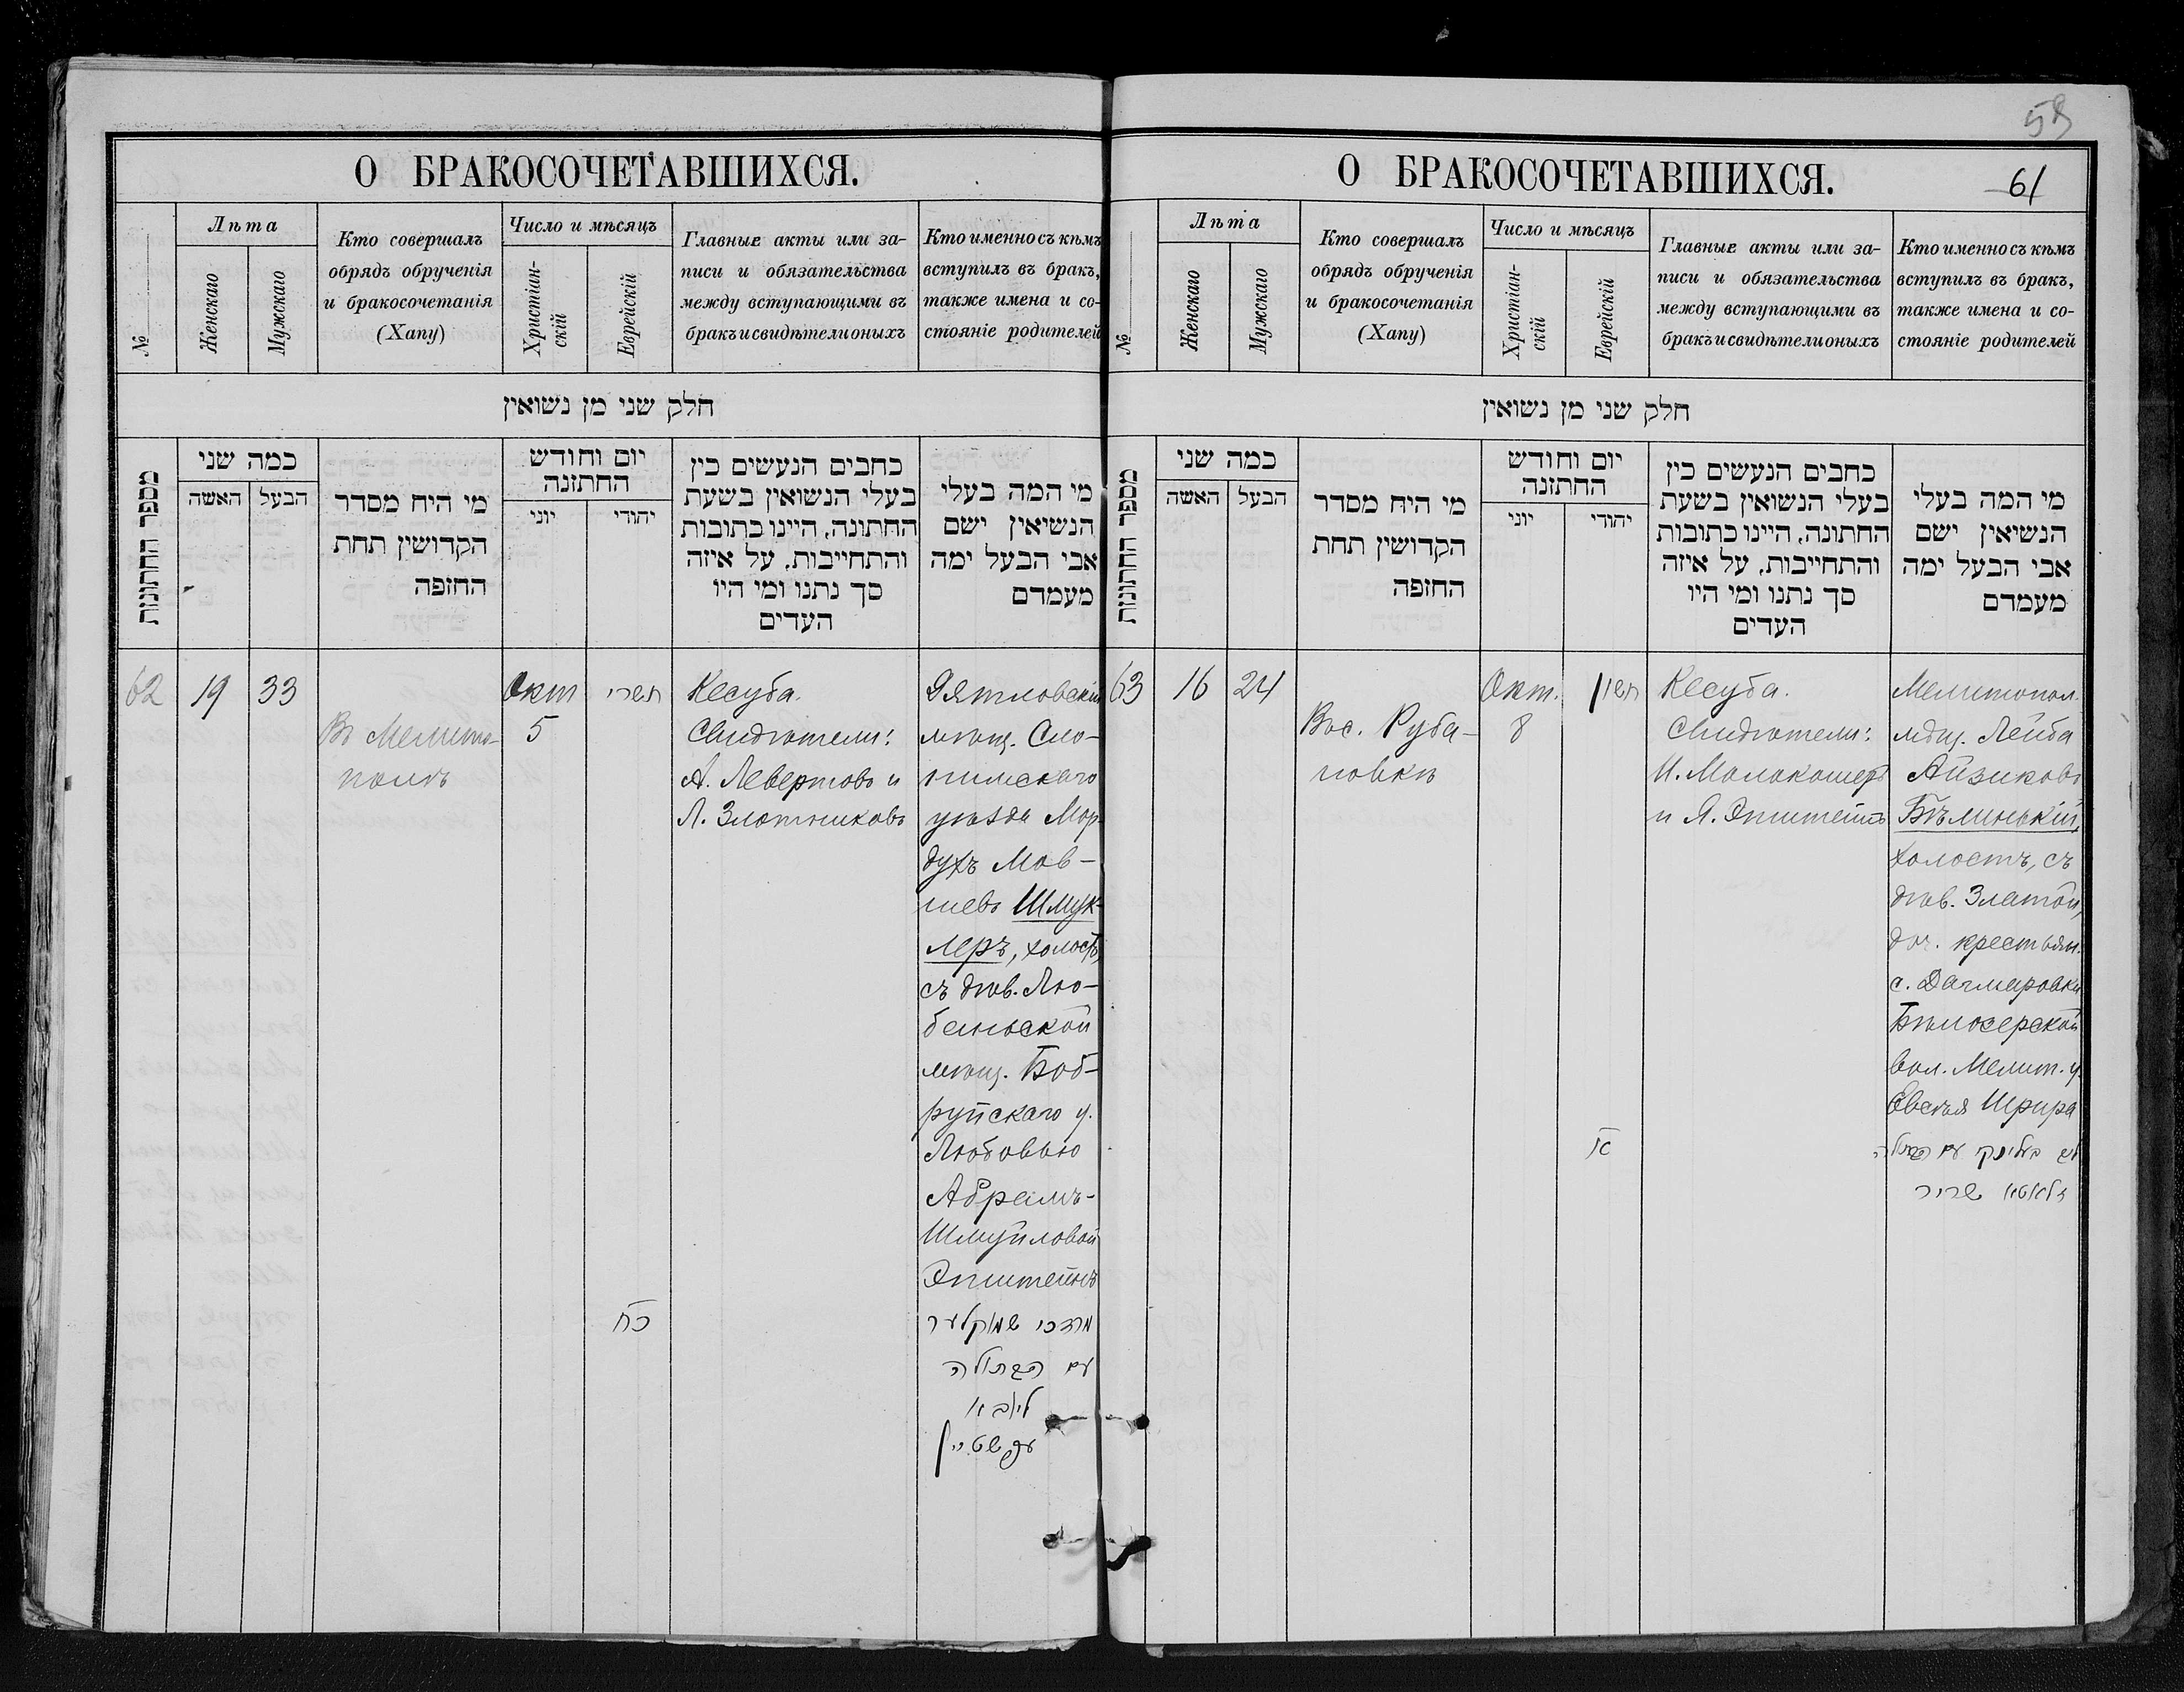 58
О БРАКОСОЧЕТАВШИХСЯ.
№
Лѣта
Женскаго
Мужскаго
Кто совершалъ
обрядъ обрученія
и бракосочетанія
(Хапу)
Число и мѣсяцъ
Христіан-
скій
Еврейскій
Главные акты или за-
писи и обязательства
между вступающими въ
бракъ и свидѣтели оныхъ
Кто именно съ кѣмъ
вступилъ въ бракъ,
также имена и со-
стояніе родителей
חלק שני מן נשואין
מספר החתונות
כמה שני
האשה
הבעל
מי היה מסדר
הקדושין תחת
החופה
יום וחודש
החתונה
יוני
יהודי
כתבים הנעשים בין
בעלי הנשואין בשעת
החתונה, היינו כתובות
והתחייבות, על איזה
סך נתנו ומי היו
העדים
מי המה בעלי
הנשיאין ישם
אבי הבעל ימה
מעמדם
62
19
33
Въ Мелито-
полѣ
Окт
5
תשרי
כח
Кесуба.
Свидѣтели:
А. Левертовъ и
Л. Злотниковъ
Дятловскій
мѣщ. Сло-
нимскаго
уѣзда Мор-
духъ Мов-
шевъ Шмук-
леръ, холостъ,
съ дѣв. Лю-
баньской
мѣщ. Боб-
руйскаго у.
Любовью
Абрамъ-
Шмуйловой
Эпштейнъ
מרדכי שמוקלער
עם הבתולה
ליובא
עפשטיין
О БРАКОСОЧЕТАВШИХСЯ.
61
№
Лѣта
Женскаго
Мужскаго
Кто совершалъ
обрядъ обрученія
и бракосочетанія
(Хапу)
Число и мѣсяцъ
Христіан-
скій
Еврейскій
Главные акты или за-
писи и обязательства
между вступающими въ
бракъ и свидѣтели оныхъ
Кто именно съ кѣмъ
вступилъ въ бракъ,
также имена и со-
стояніе родителей
חלק שני מן נשואין
מספר החתונות
כמה שני
האשה
הבעל
מי היה מסדר
הקדושין תחת
החופה
יום וחודש
החתונה
יוני
יהודי
כתבים הנעשים בין
בעלי הנשואין בשעת
החתונה, היינו כתובות
והתחייבות, על איזה
סך נתנו ומי היו
העדים
מי המה בעלי
הנשיאין ישם
אבי הבעל ימה
מעמדם
63
16
24
Въ с. Руба-
новкѣ
Окт.
8
חשון
א
Кесуба.
Свидѣтели:
И. Молокошеръ
и Я. Эпштейнъ
Мелитопол.
мѣщ. Лейба
Айзиковъ
Бѣлинькій,
холостъ, съ
дѣв. Златой,
доч. крестьян.
с. Дагмаровки
Бѣлозерской
вол. Мелит. у.
Евсѣя Шрира
ליב בעלינקי עם הבתולה
זלאטא שריר